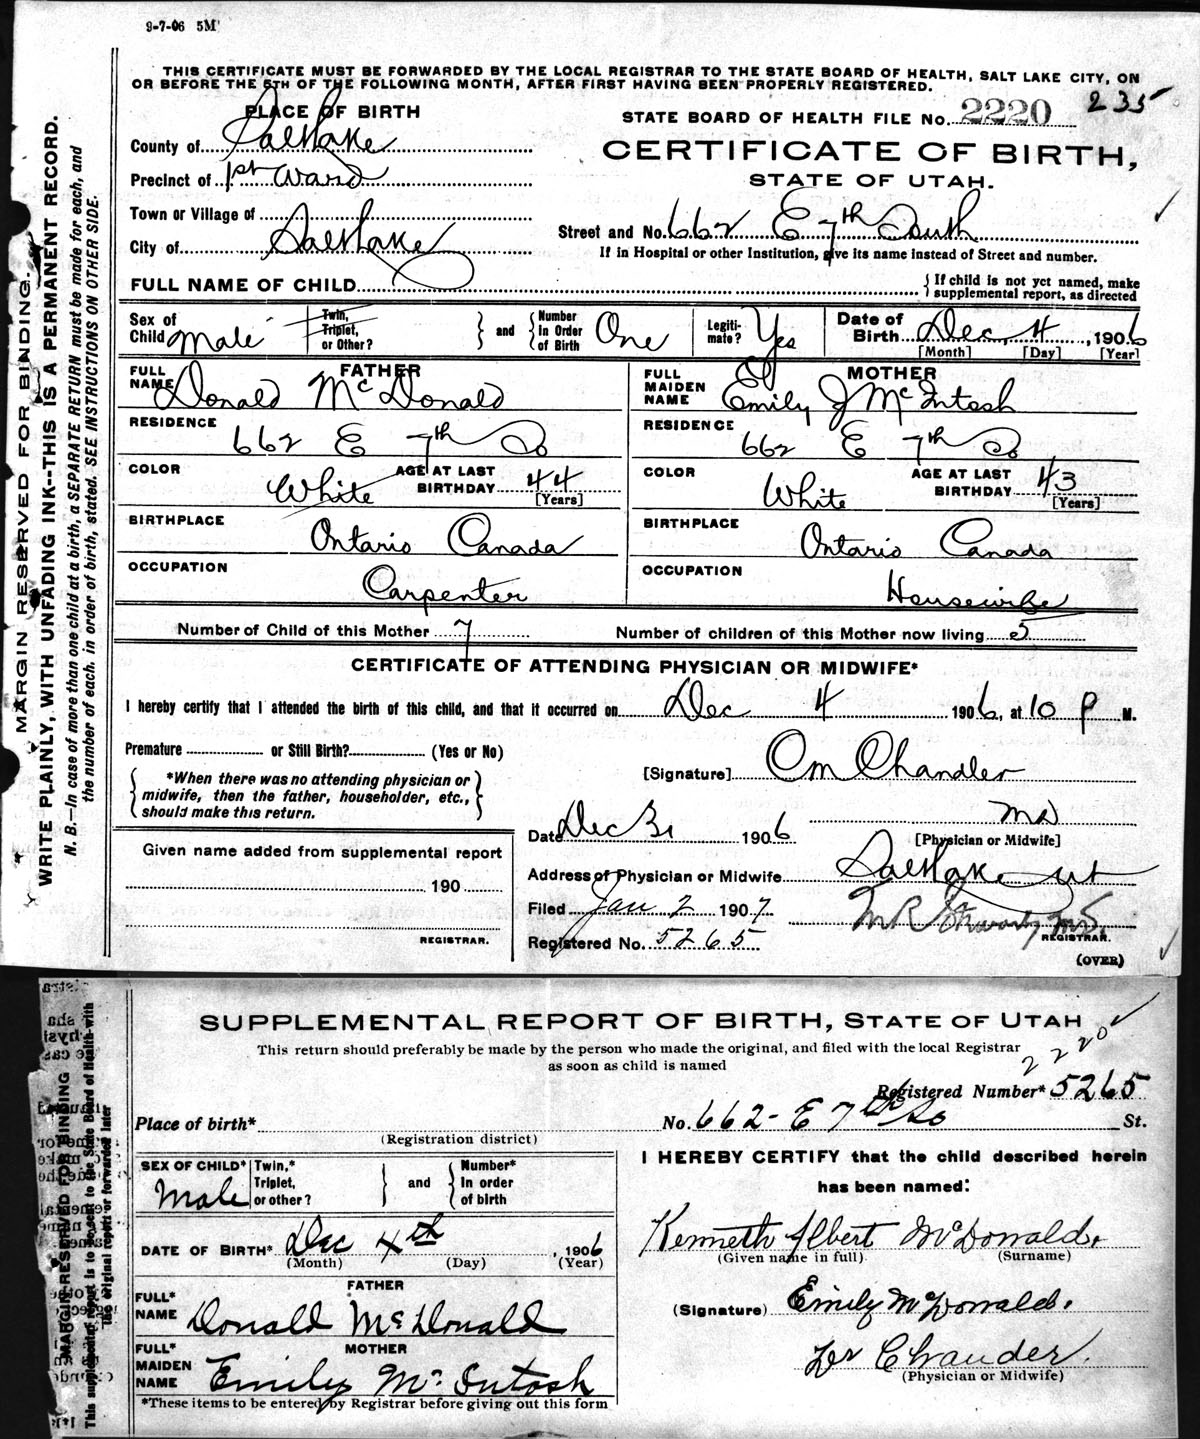 9-7-06 5M
THIS CERTIFICATE MUST BE FORWARDED BY THE LOCAL REGISTRAR TO THE STATE BOARD OF HEALTH, SALT LAKE CITY, ON
OR BEFORE THE 5TH OF THE FOLLOWING MONTH, AFTER FIRST HAVING BEEN PROPERLY REGISTERED.
235
PLACE OF BIRTH
STATE BOARD OF HEALTH FILE No. 2220
County of Salt Lake
CERTIFICATE OF BIRTH,
Precinct of 1st Ward
STATE OF UTAH.
Town or Village of
Street and No. 662 E 7th South
City of Salt Lake
If in Hospital or other Institution, give its name instead of Street and number.
FULL NAME OF CHILD
If child is not yet named, make
supplemental report, as directed
Sex of Child Male
Twin, Triplet, or Other?
and
Number In Order of Birth One
Legiti-mate? Yes
Date of Birth Dec 4, 1906
[Month] [Day] [Year]
FATHER
FULL NAME Donald McDonald
MOTHER
FULL MAIDEN NAME Emily J McIntosh
RESIDENCE 662 E 7th So
RESIDENCE 662 E 7th So
COLOR White AGE AT LAST BIRTHDAY 44 [Years]
COLOR White AGE AT LAST BIRTHDAY 43 [Years]
BIRTHPLACE Ontario Canada
BIRTHPLACE Ontario Canada
OCCUPATION Carpenter
OCCUPATION Housewife
Number of Child of this Mother 7
Number of children of this Mother now living 5
CERTIFICATE OF ATTENDING PHYSICIAN OR MIDWIFE*
I hereby certify that I attended the birth of this child, and that it occurred on Dec 4 1906, at 10 P M.
Premature or Still Birth? (Yes or No)
[Signature] Om Chandler
*When there was no attending physician or
midwife, then the father, householder, etc.,
should make this return.
MD
Date Dec 31 1906
[Physician or Midwife]
Given name added from supplemental report
Address of Physician or Midwife Salt Lake Ut
190
Filed Jan 2 1907
M R
REGISTRAR.
Registered No. 5265
REGISTRAR.
(OVER)
MARGIN RESERVED FOR BINDING.
WRITE PLAINLY, WITH UNFADING INK--THIS IS A PERMANENT RECORD.
N. B.—In case of more than one child at a birth, a SEPARATE RETURN must be made for each, and
the number of each, in order of birth, stated. SEE INSTRUCTIONS ON OTHER SIDE.
SUPPLEMENTAL REPORT OF BIRTH, STATE OF UTAH
This return should preferably be made by the person who made the original, and filed with the local Registrar
as soon as child is named
2220
Registered Number* 5265
Place of birth*
No. 662 - E 7th So St.
(Registration district)
SEX OF CHILD* Male
Twin,* Triplet, or other?
and
Number* In order of birth
I HEREBY CERTIFY that the child described herein
has been named:
DATE OF BIRTH* Dec 4th, 1906
(Month) (Day) (Year)
Kenneth Albert McDonald.
(Given name in full) (Surname)
FATHER
FULL* NAME Donald McDonald
(Signature) Emily McDonald.
MOTHER
FULL* MAIDEN NAME Emily McIntosh
Dr Chander.
(Physician or Midwife)
*These items to be entered by Registrar before giving out this form
MARGIN RESERVED FOR BINDING
This supplemental report is to be sent to the State Board of Health with
the original report or forwarded later